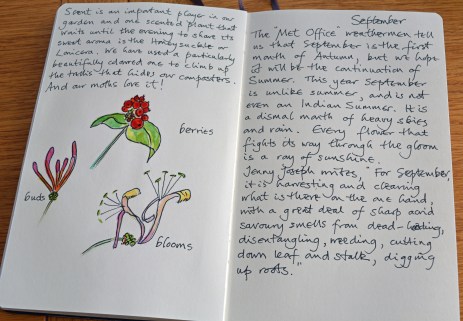 Scent is an important player in our
garden and one scented plant that
waits until the evening to share its
sweet aroma is the Honeysuckle or
Lonicera. We have used a particularly
beautifully coloured one to climb up
the trellis that hides our composters.
And our moths love it!
berries
buds
blooms
September
The "Met Office" weathermen tell
us that September is the first
month of Autumn, but we hope
it will be the continuation of
Summer. This year September
is unlike summer, and is not
even an Indian Summer. It is
a dismal month of heavy skies
and rain. Every flower that
fights its way through the gloom
is a ray of sunshine.
Jenny Joseph writes, "For September,
it is harvesting and clearing
what is there on the one hand,
with a great deal of sharp acid
savoury smells from dead-heading,
disentangling, weeding, cutting
down leaf and stalk, digging
up roots."